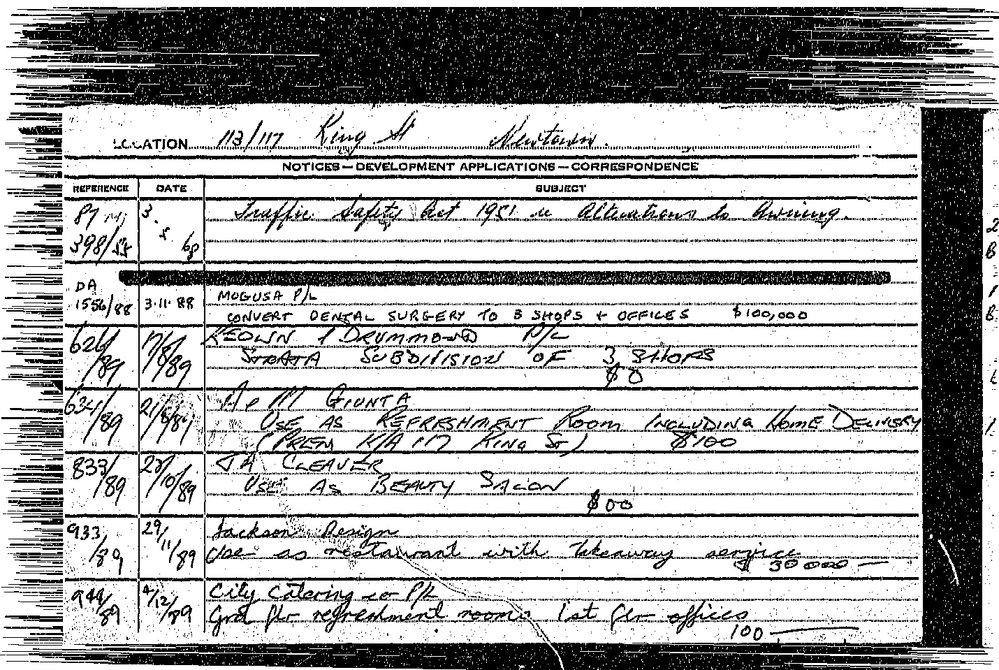 LOCATION 113/117 King St Newtown.
NOTICES — DEVELOPMENT APPLICATIONS — CORRESPONDENCE
REFERENCE DATE SUBJECT
87 3. Traffic Safety Act 1951 re Alterations to Awning.
398/55 5 68
DA MOGUSA P/L
1556/88 3.11.88 CONVERT DENTAL SURGERY TO 3 SHOPS + OFFICES $100,000
KEOWN & DRUMMOND P/L
/89 /89 STRATA SUBDIVISION OF 3 SHOPS
$0
634/89 21/8/89 A & M GIUNTA
USE AS REFRESHMENT ROOM INCLUDING HOME DELIVERY
(PREM K/A 117 KING ST) $100
833/89 /10/89 CLEAVER
USE AS BEAUTY SALON
$00
933/89 29/11/89 Jackson Design
Use as restaurant with takeaway service
$ 30000 —
944/89 4/12/89 City Catering co P/L
Grd flr refreshment rooms 1st flr offices
100 —
2
B